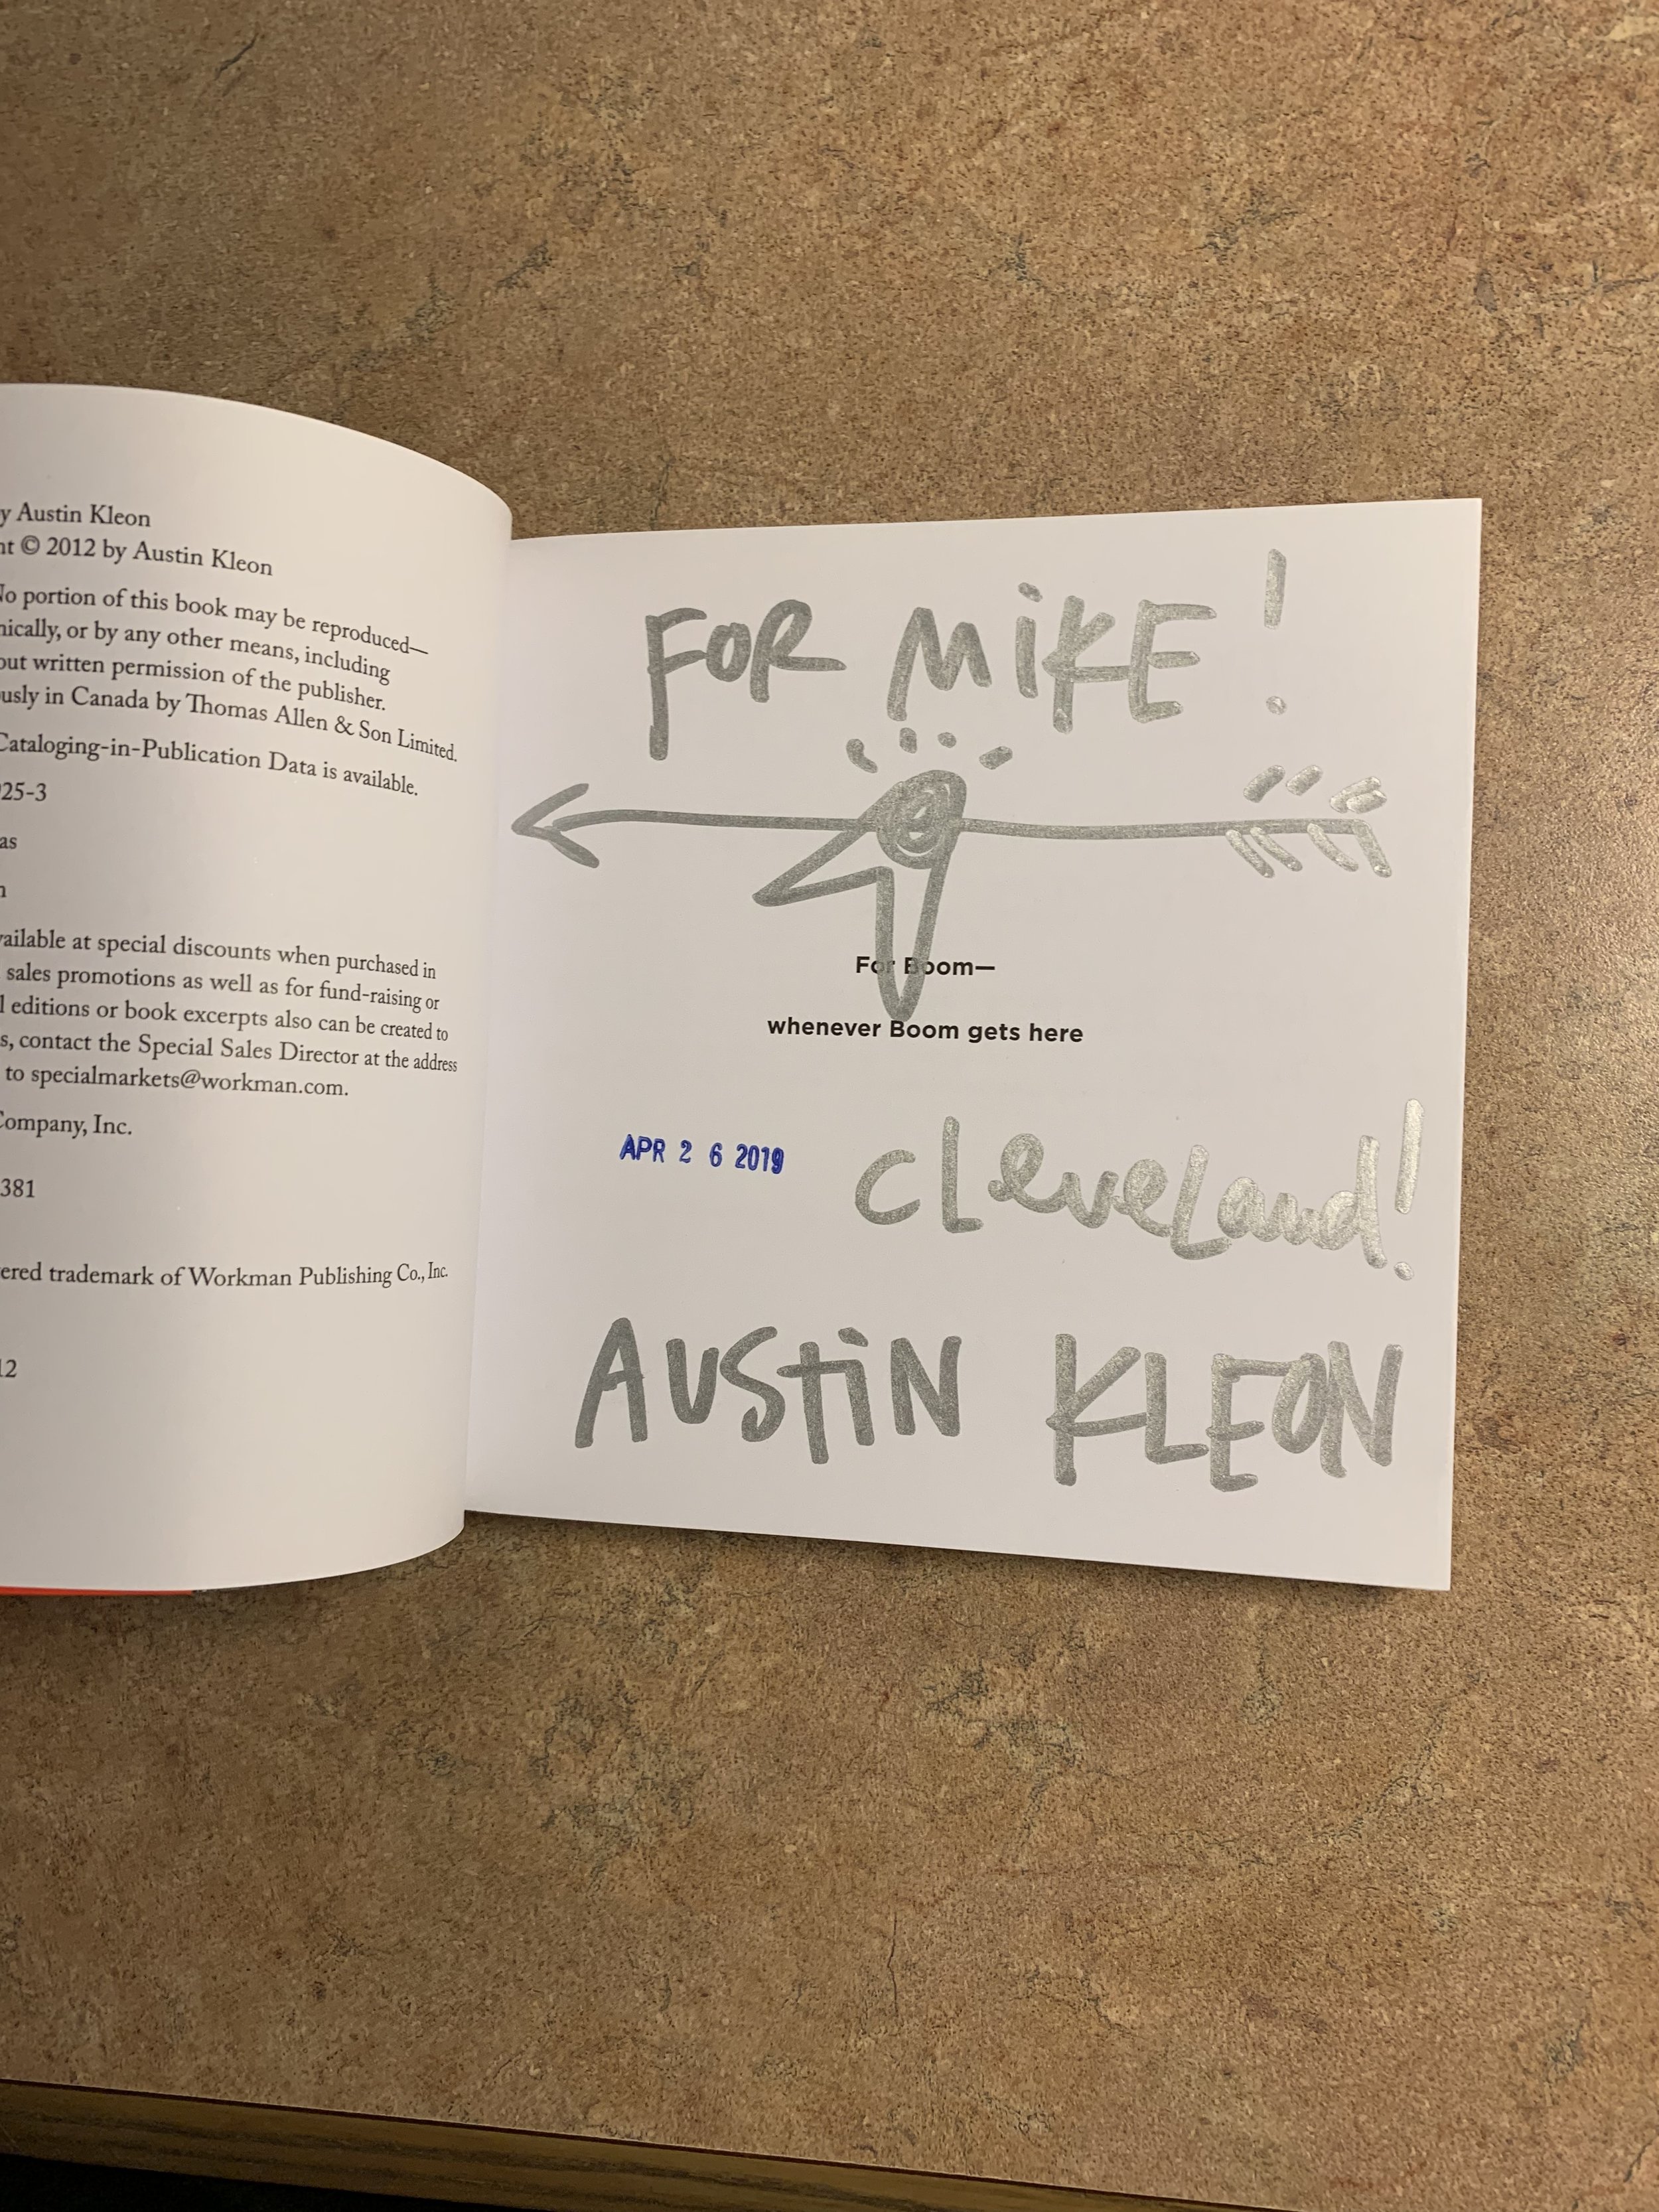 y Austin Kleon
nt © 2012 by Austin Kleon
No portion of this book may be reproduced—
nically, or by any other means, including
out written permission of the publisher.
usly in Canada by Thomas Allen & Son Limited.
Cataloging-in-Publication Data is available.
25-3
as
n
vailable at special discounts when purchased in
sales promotions as well as for fund-raising or
l editions or book excerpts also can be created to
s, contact the Special Sales Director at the address
to specialmarkets@workman.com.
Company, Inc.
381
ered trademark of Workman Publishing Co., Inc.
12
FOR MiKE!
For Boom—
whenever Boom gets here
APR 2 6 2019
cLeveLand!
AUStiN KLEON